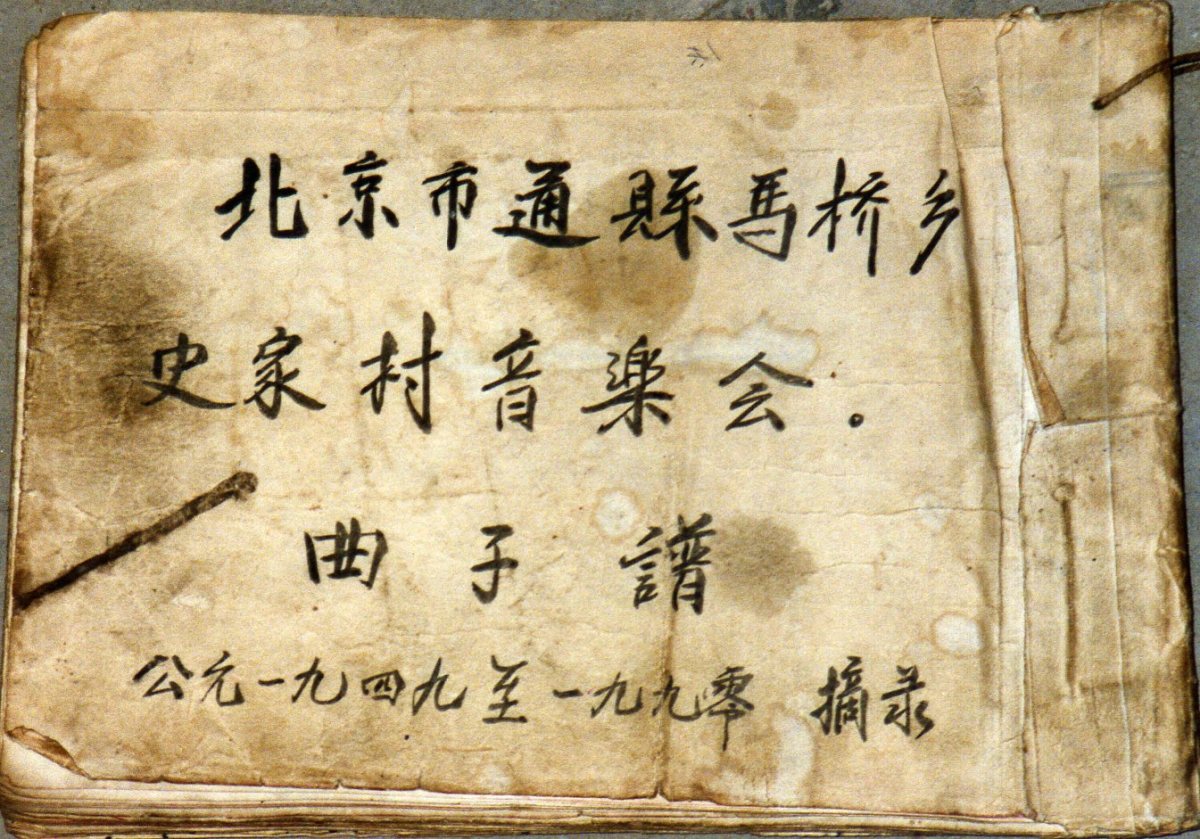 北京市通縣馬桥乡
史家村音楽会。
曲子譜
公元一九四九至一九九零 摘录